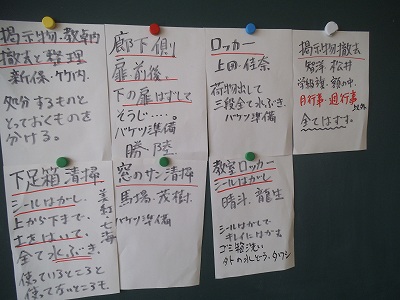 掲示物・教卓内
撤去と整理
新保・竹内
処分するものと
とっておくものを
分ける。
廊下側
扉前後、
下の扉はずして
そうじ‥‥。
バケツ準備
勝 陸
ロッカー
上田・佳奈
荷物出して
三段全て水ぶき。
バケツ準備
掲示物撤去
智洋 松井
学級旗・額の中、
月行事・週行事以外
全てはずす。
下足箱清掃
シールはがし
上から下まで、
土をはいて、
全て水ぶき。
使っているところと
使ってないところも、
美紅 七海
窓のサン清掃
馬場・茂樹、
バケツ準備
教室ロッカー
シールはがし
晴斗、龍生
シールはがして
キレイにはがす
ゴミ箱洗い
外の水しどう、タワシ